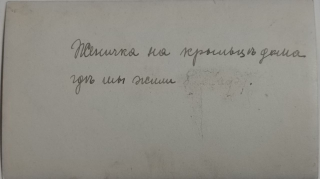 Женичка на крыльцѣ дома
гдѣ мы жили